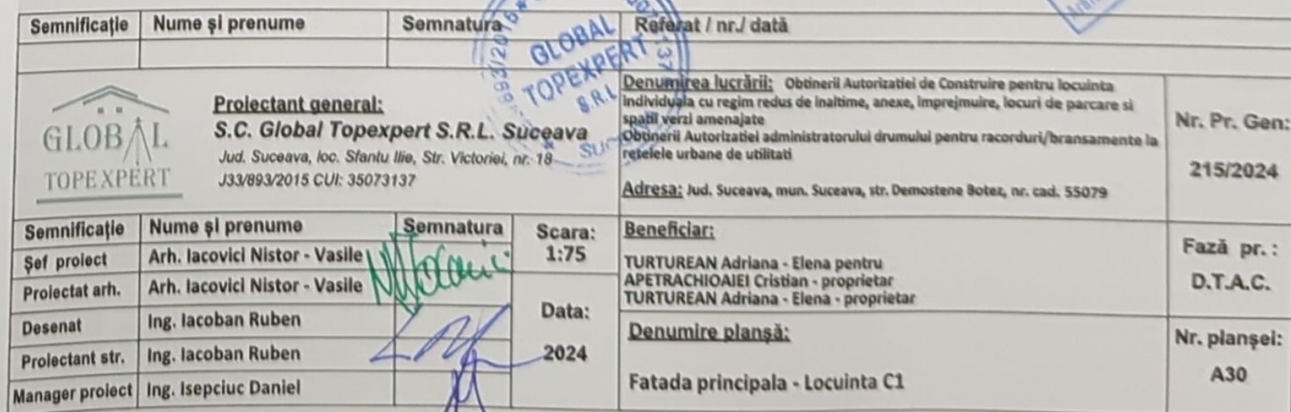 Semnificație Nume și prenume Semnatura Referat / nr./ dată
GLOBAL
TOPEXPERT
S.R.L.
GLOBAL
TOPEXPERT
Proiectant general:
S.C. Global Topexpert S.R.L. Suceava
Jud. Suceava, loc. Sfantu Ilie, Str. Victoriei, nr. 18
J33/893/2015 CUI: 35073137
Denumirea lucrării: Obtinerii Autorizatiei de Construire pentru locuinta
individuala cu regim redus de inaltime, anexe, imprejmuire, locuri de parcare si
spatii verzi amenajate
Obtinerii Autorizatiei administratorului drumului pentru racorduri/bransamente la
retelele urbane de utilitati
Adresa: Jud. Suceava, mun. Suceava, str. Demostene Botez, nr. cad. 55079
Nr. Pr. Gen:
215/2024
Semnificație Nume și prenume Semnatura Scara:
Șef proiect Arh. Iacovici Nistor - Vasile 1:75
Proiectat arh. Arh. Iacovici Nistor - Vasile Data:
Desenat Ing. Iacoban Ruben
Proiectant str. Ing. Iacoban Ruben 2024
Manager proiect Ing. Isepciuc Daniel
Beneficiar:
TURTUREAN Adriana - Elena pentru
APETRACHIOAIEI Cristian - proprietar
TURTUREAN Adriana - Elena - proprietar
Fază pr. :
D.T.A.C.
Denumire planșă:
Fatada principala - Locuinta C1
Nr. planșei:
A30